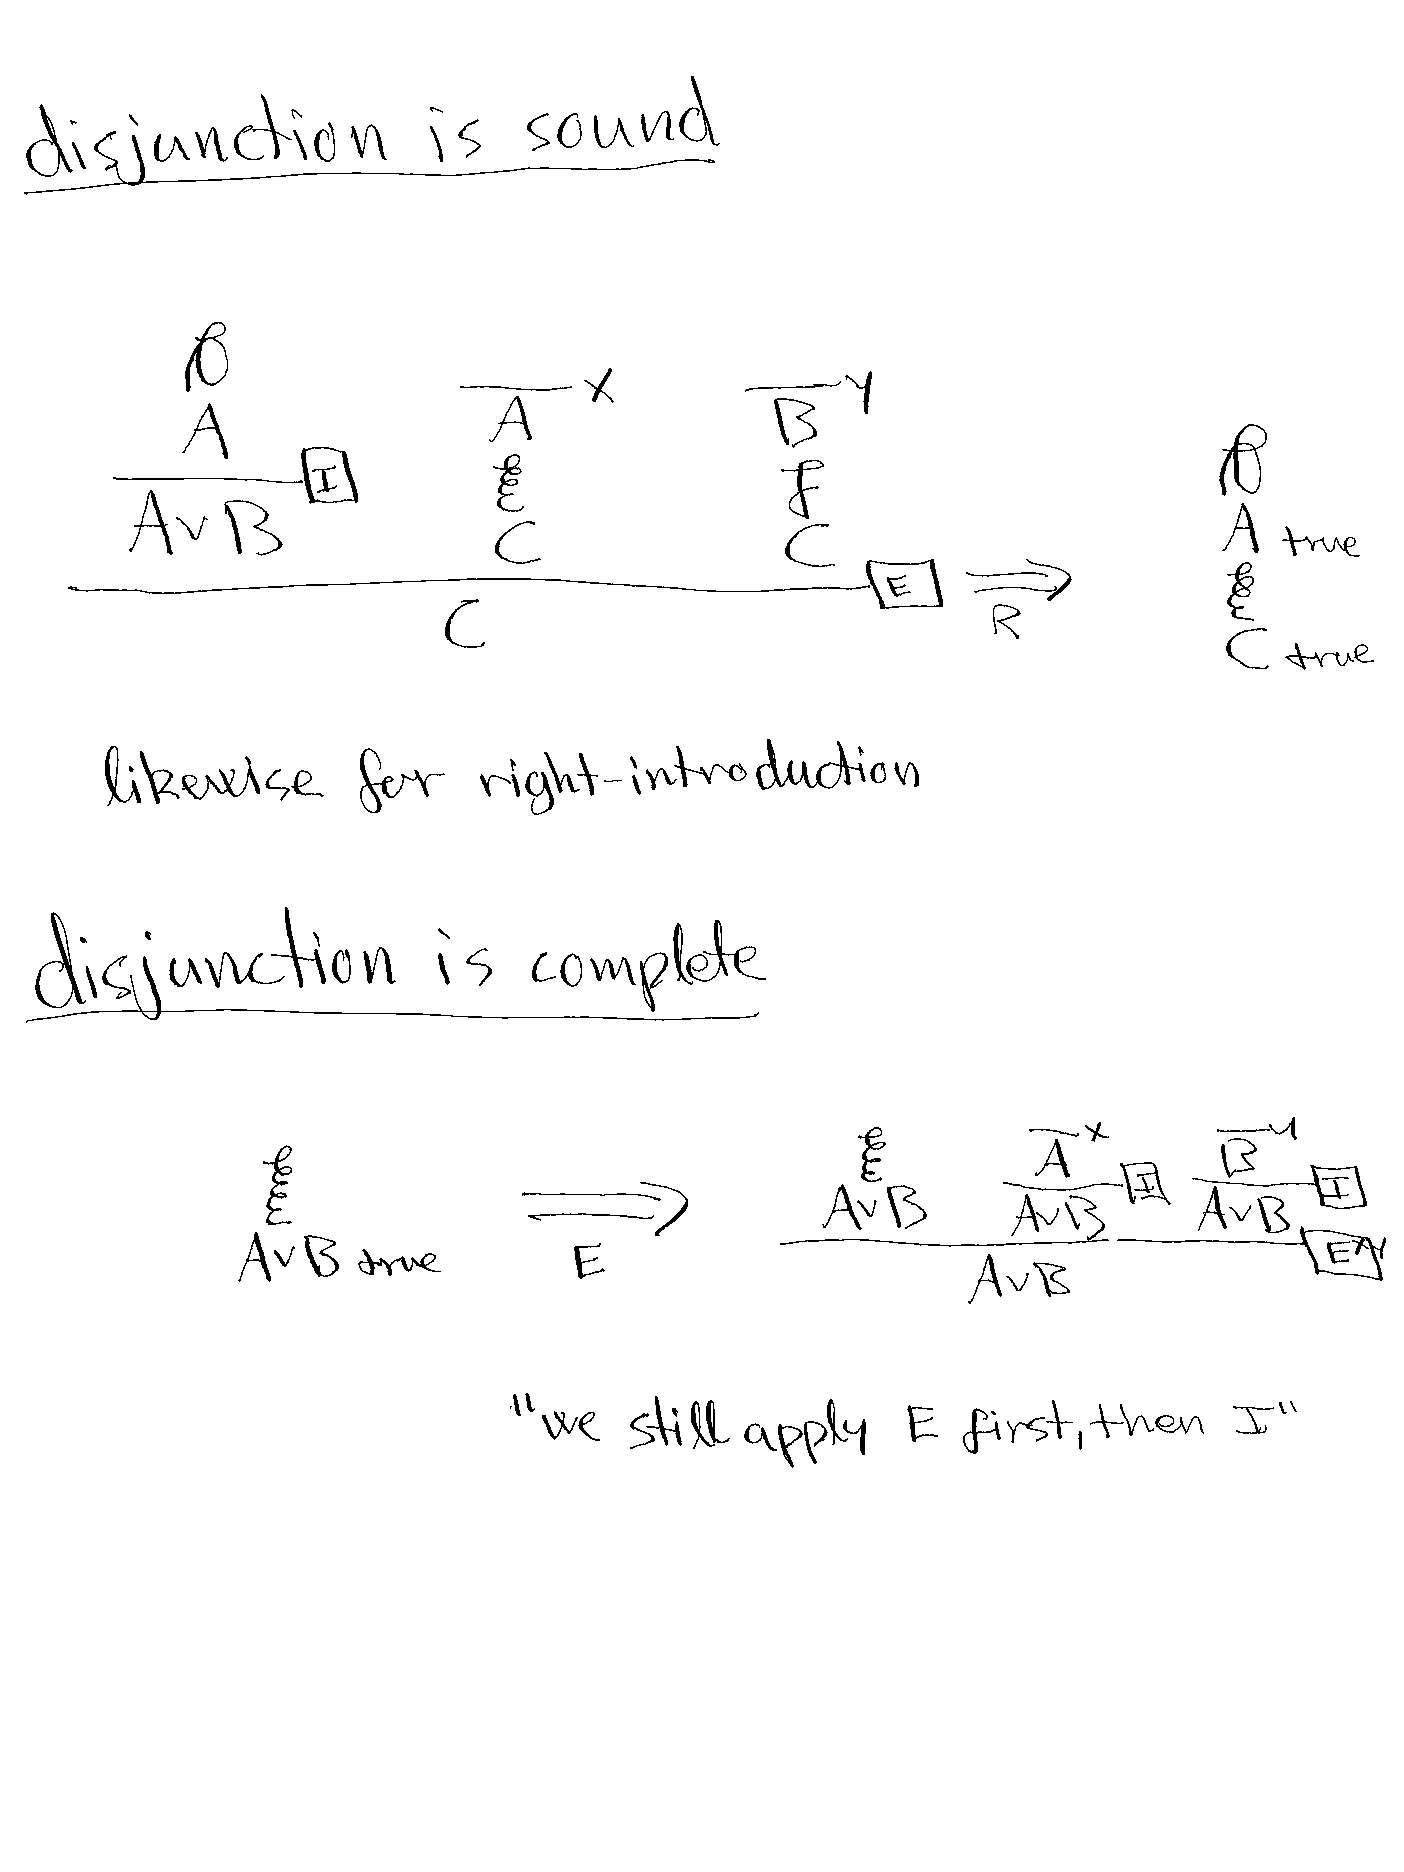 disjunction is sound
D
A
I
A∨B
A x
E
C
B y
F
C
E
C
⇒
R
D
A true
E
C true
likewise for right-introduction
disjunction is complete
E
A∨B true
⇒
E
E
A∨B
A x
I
A∨B
B y
I
A∨B
E x,y
A∨B
"we still apply E first, then I"